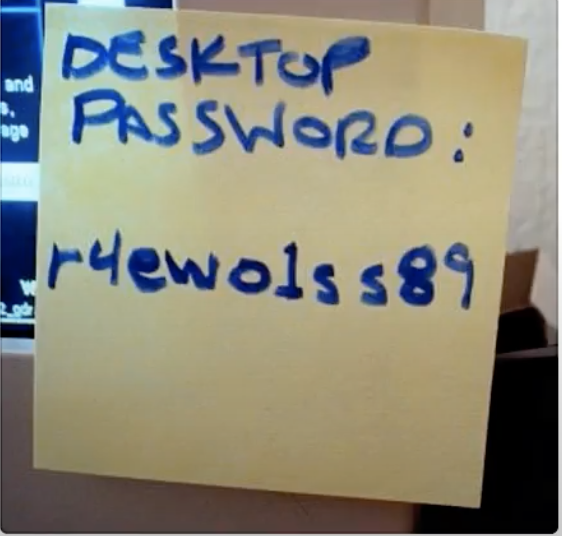 and
s,
age
DESKTOP
PASSWORD:
r4ewo1ss89